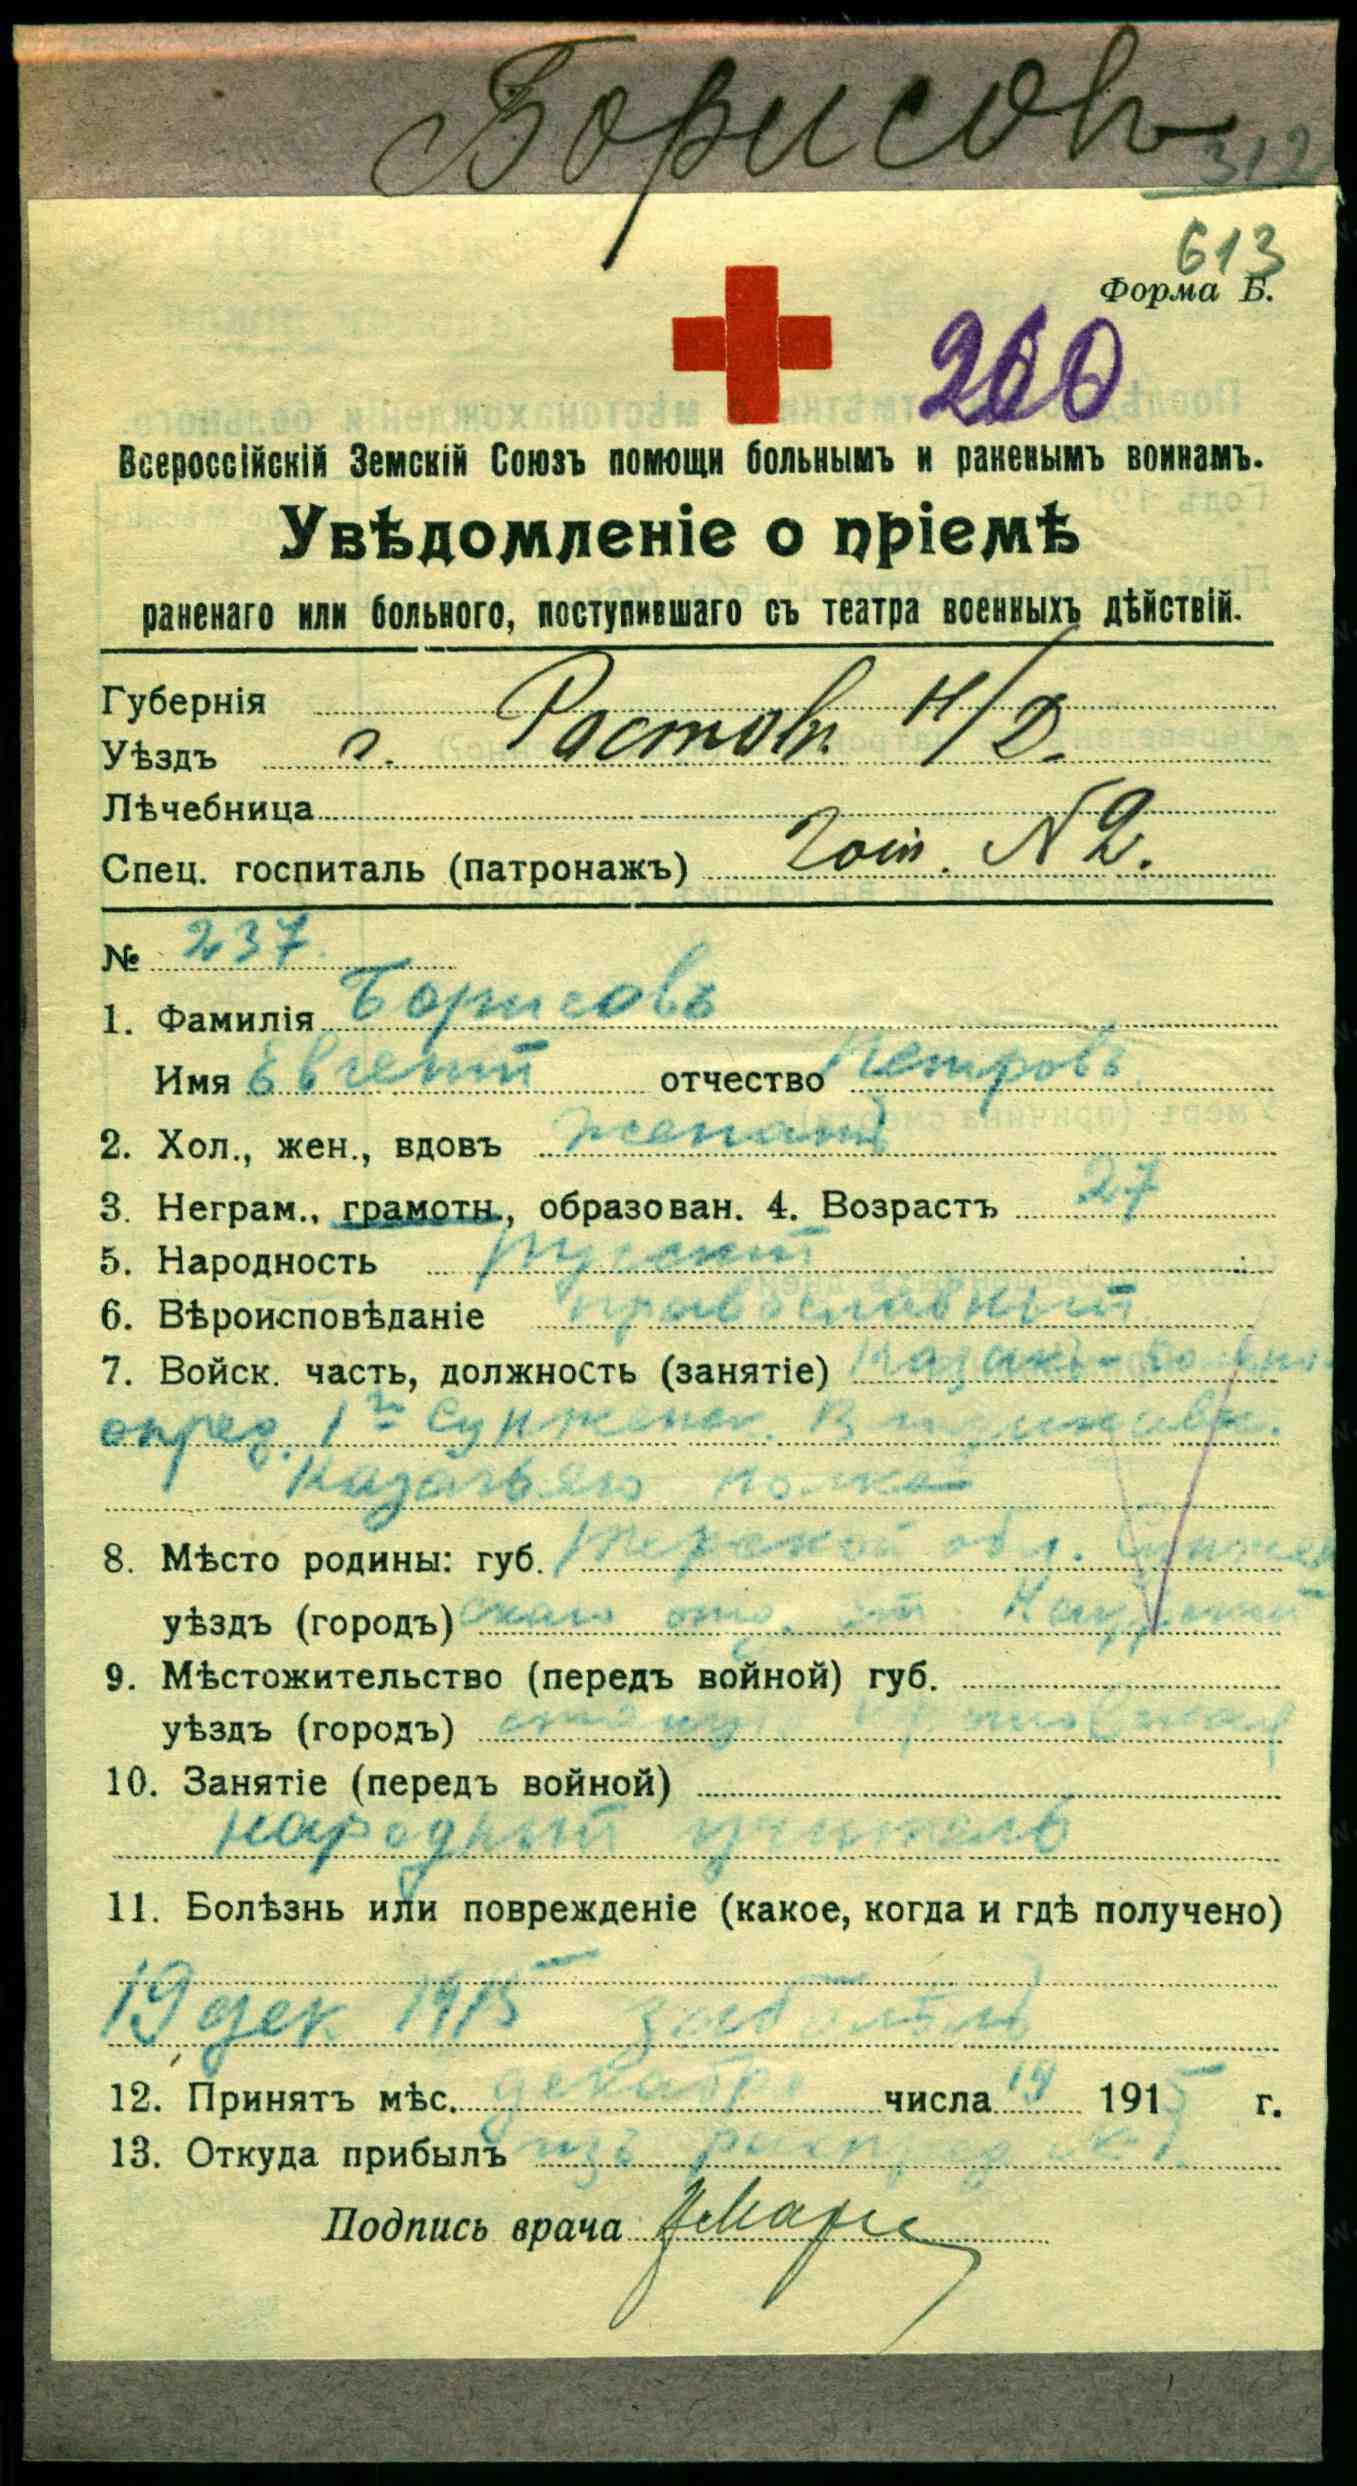 Борисовъ
312
613
Форма Б.
260
Всероссійскій Земскій Союзъ помощи больнымъ и раненымъ воинамъ.
Увѣдомленіе о пріемѣ
раненаго или больного, поступившаго съ театра военныхъ дѣйствій.
Губернія
Уѣздъ г. Ростовъ Н/Д.
Лѣчебница
Спец. госпиталь (патронажъ) Госп. № 2.
№ 237.
1. Фамилія Борисовъ
Имя Евгеній отчество Петровъ
2. Хол., жен., вдовъ женатъ
3. Неграм., грамотн., образован. 4. Возрастъ 27
5. Народность русскій
6. Вѣроисповѣданіе православный
7. Войск. часть, должность (занятіе) Казакъ-вольно-
опред. 1го Сунженск. Владикавк.
Казачьяго полка
8. Мѣсто родины: губ. Терской обл. Сунжен
уѣздъ (городъ) скаго отд.
9. Мѣстожительство (передъ войной) губ.
уѣздъ (городъ)
10. Занятіе (передъ войной)
народный учитель
11. Болѣзнь или поврежденіе (какое, когда и гдѣ получено)
19 дек 1915 заболѣлъ
12. Принятъ мѣс. декабрь числа 19 1915 г.
13. Откуда прибылъ изъ распред
Подпись врача